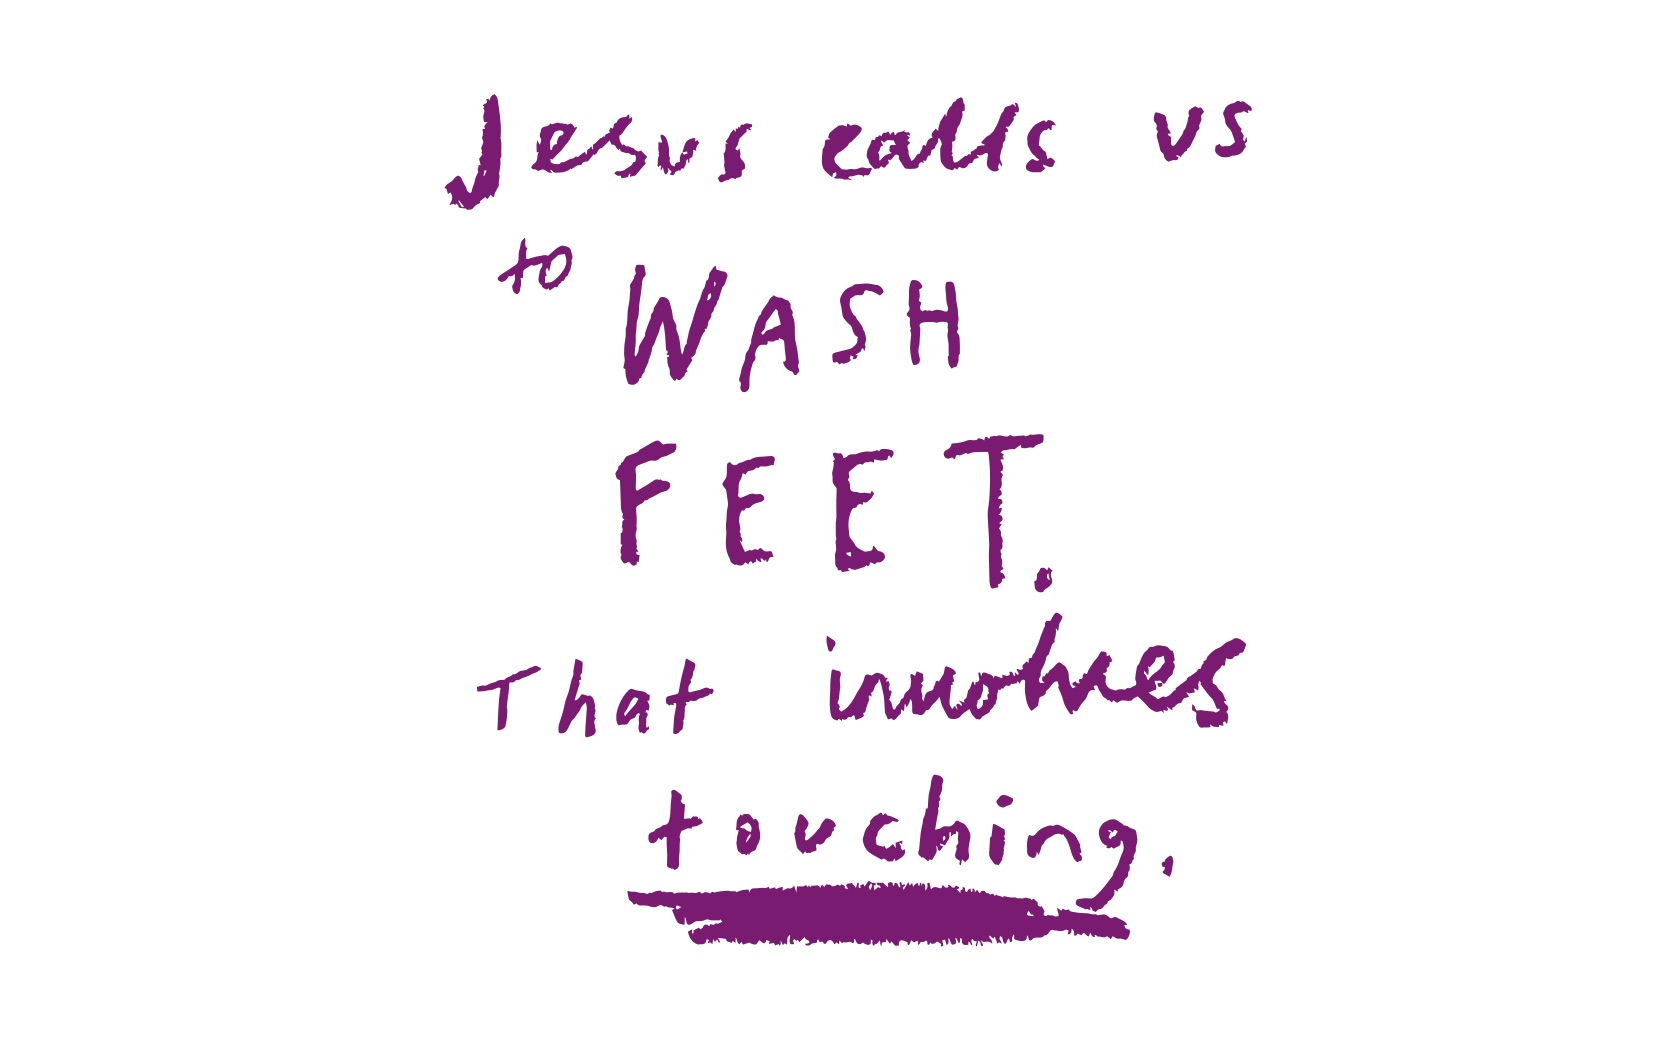 Jesus calls us
to WASH
FEET.
That involves
touching.